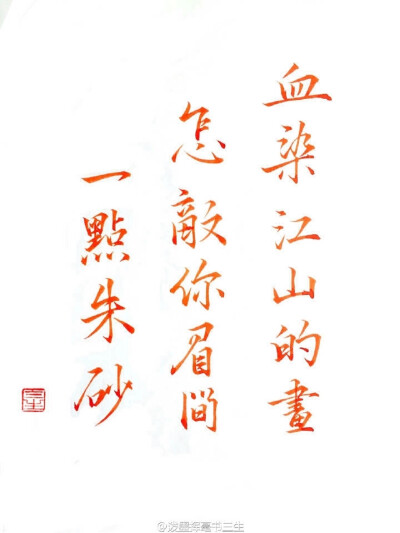 血染江山的畫
怎敵你眉間
一點朱砂
@泼墨挥毫书三生